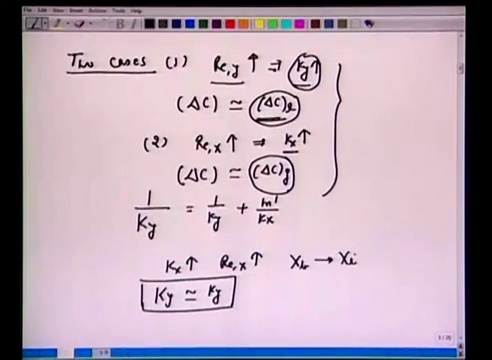 Two cases (1) Re,y ↑ ⇒ ky↑
(ΔC) ≃ (ΔC)l
(2) Re,x ↑ ⇒ kx↑
(ΔC) ≃ (ΔC)g
1/Ky = 1/ky + m'/kx
Kx ↑ Re,x ↑ Xb → Xi
Ky ≃ ky